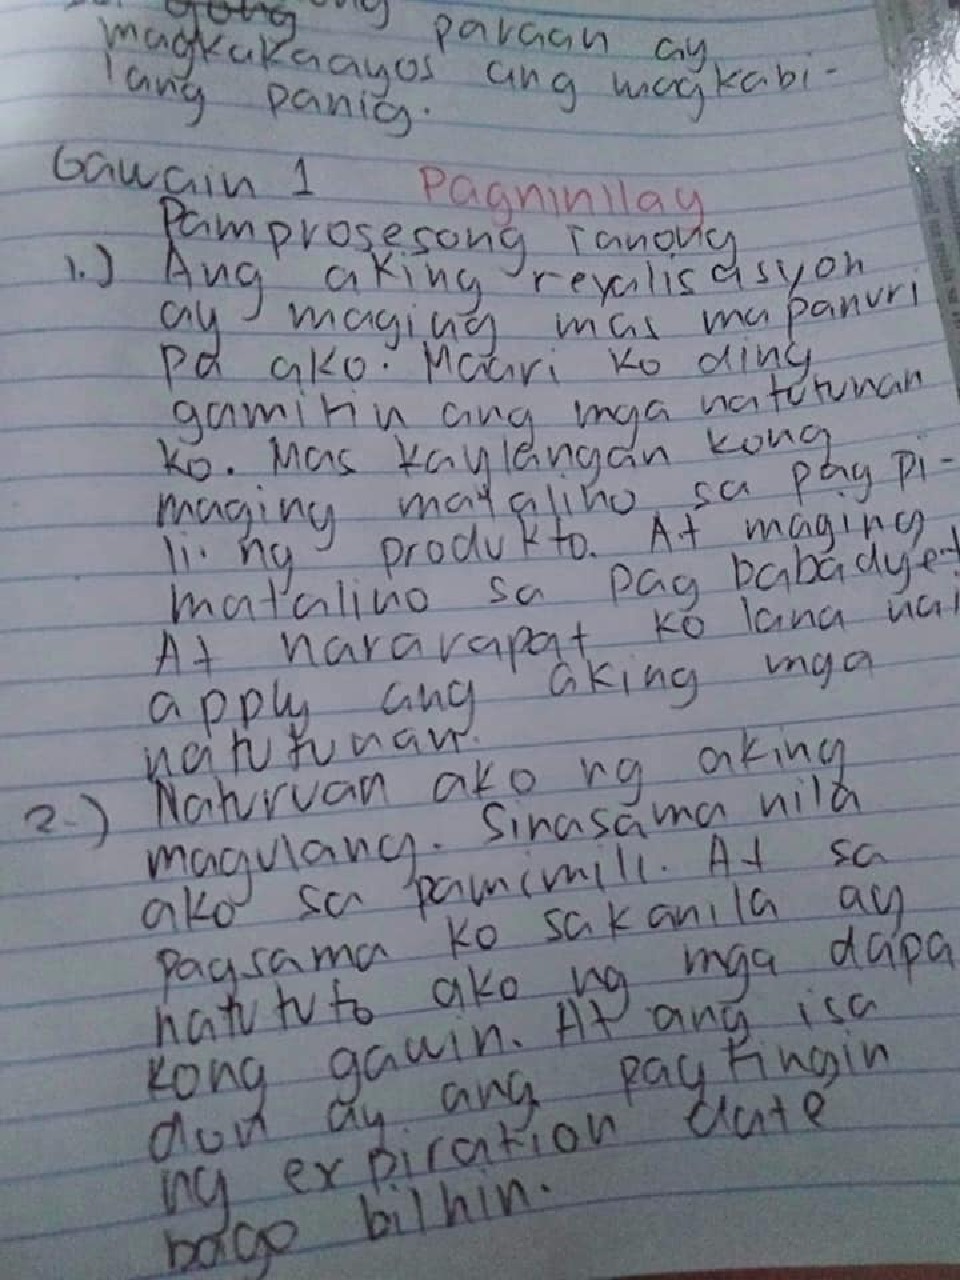 paraan ay
magkakaayos ang magkabi-
lang panig.
Gawain 1 Pagninilay
Pamprosesong Tanong
1.) Ang aking reyalisasyon
ay maging mas mapanuri
pa ako. Maari ko ding
gamitin ang mga natutunan
ko. Mas kaylangan kong
maging matalino sa pag pi-
li ng produkto. At maging
matalino sa pag babadyet
At nararapat ko lang nai
apply ang aking mga
natutunan.
2.) Naturuan ako ng aking
magulang. Sinasama nila
ako sa pamimili. At sa
pagsama ko sakanila ay
natututo ako ng mga dapa
kong gawin. At ang isa
don ay ang pagtingin
ng expiration date
bago bilhin.